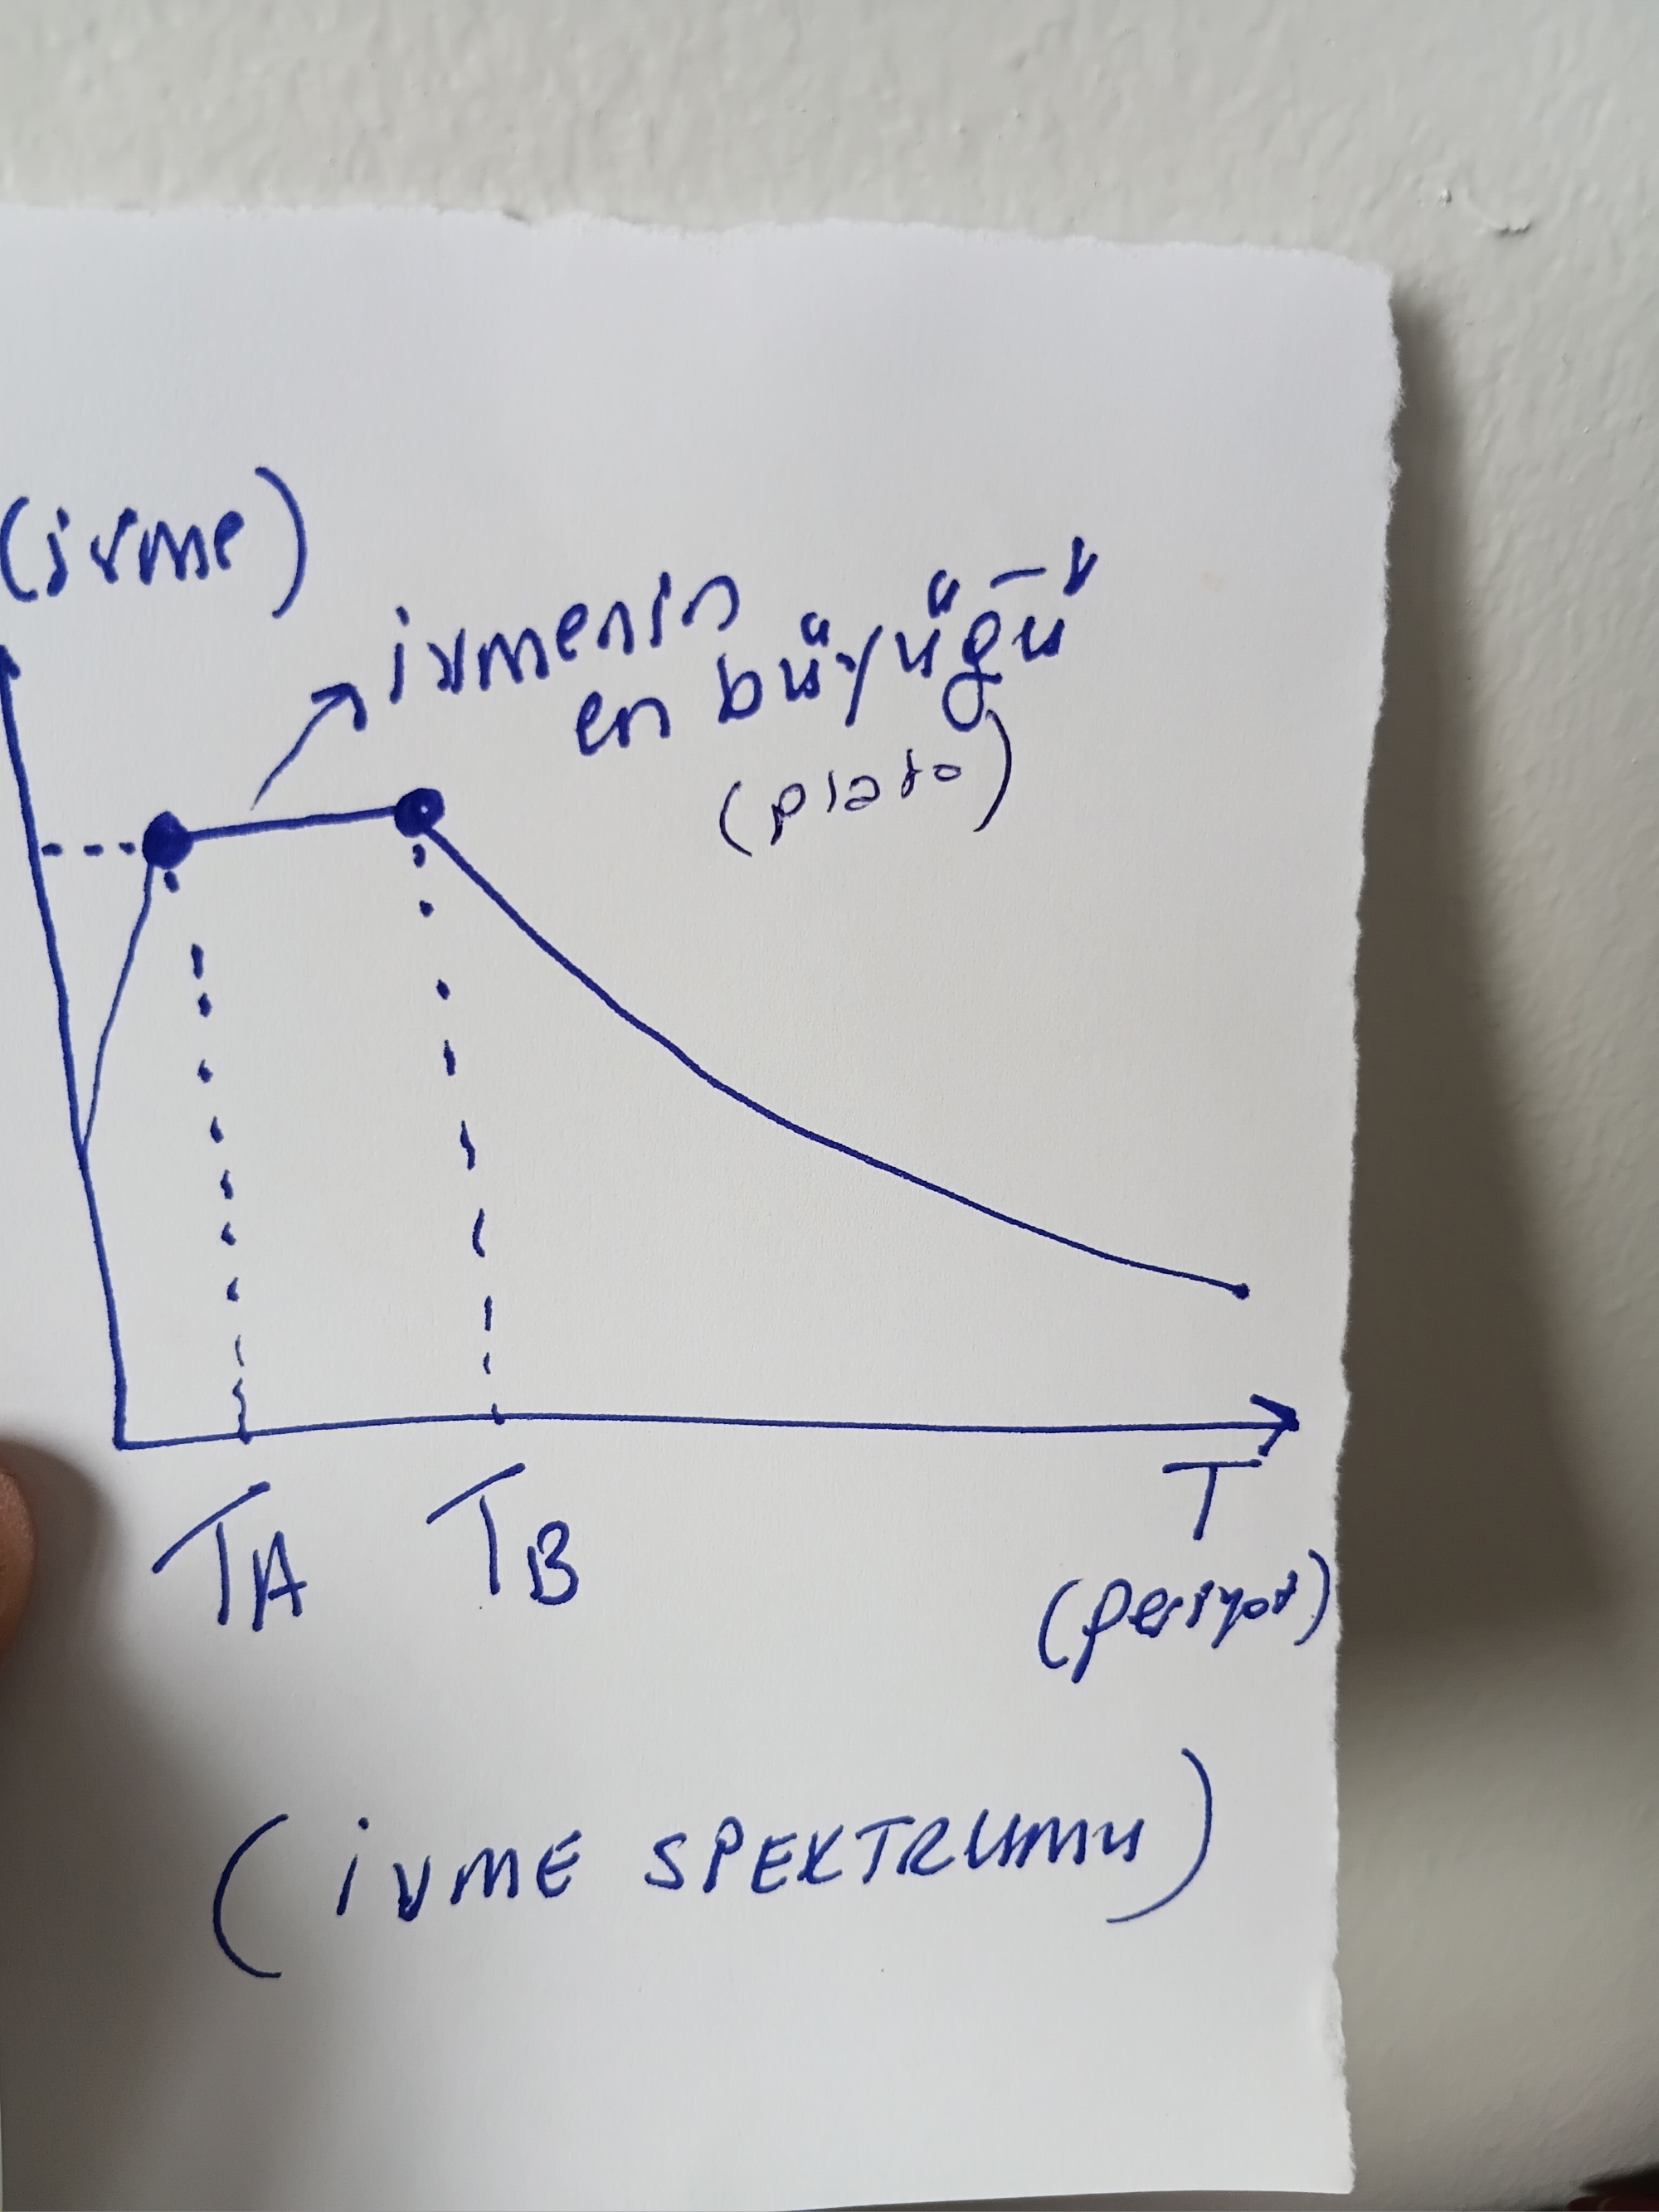 (ivme)
ivmenin
en büyüğü
(plato)
TA TB T
(periyot)
(iVME SPEKTRUMU)